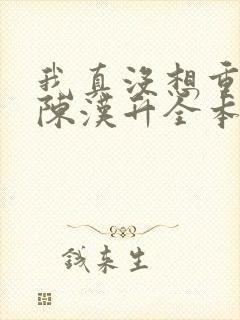 我真沒想重
陳漢升全本
錢来生